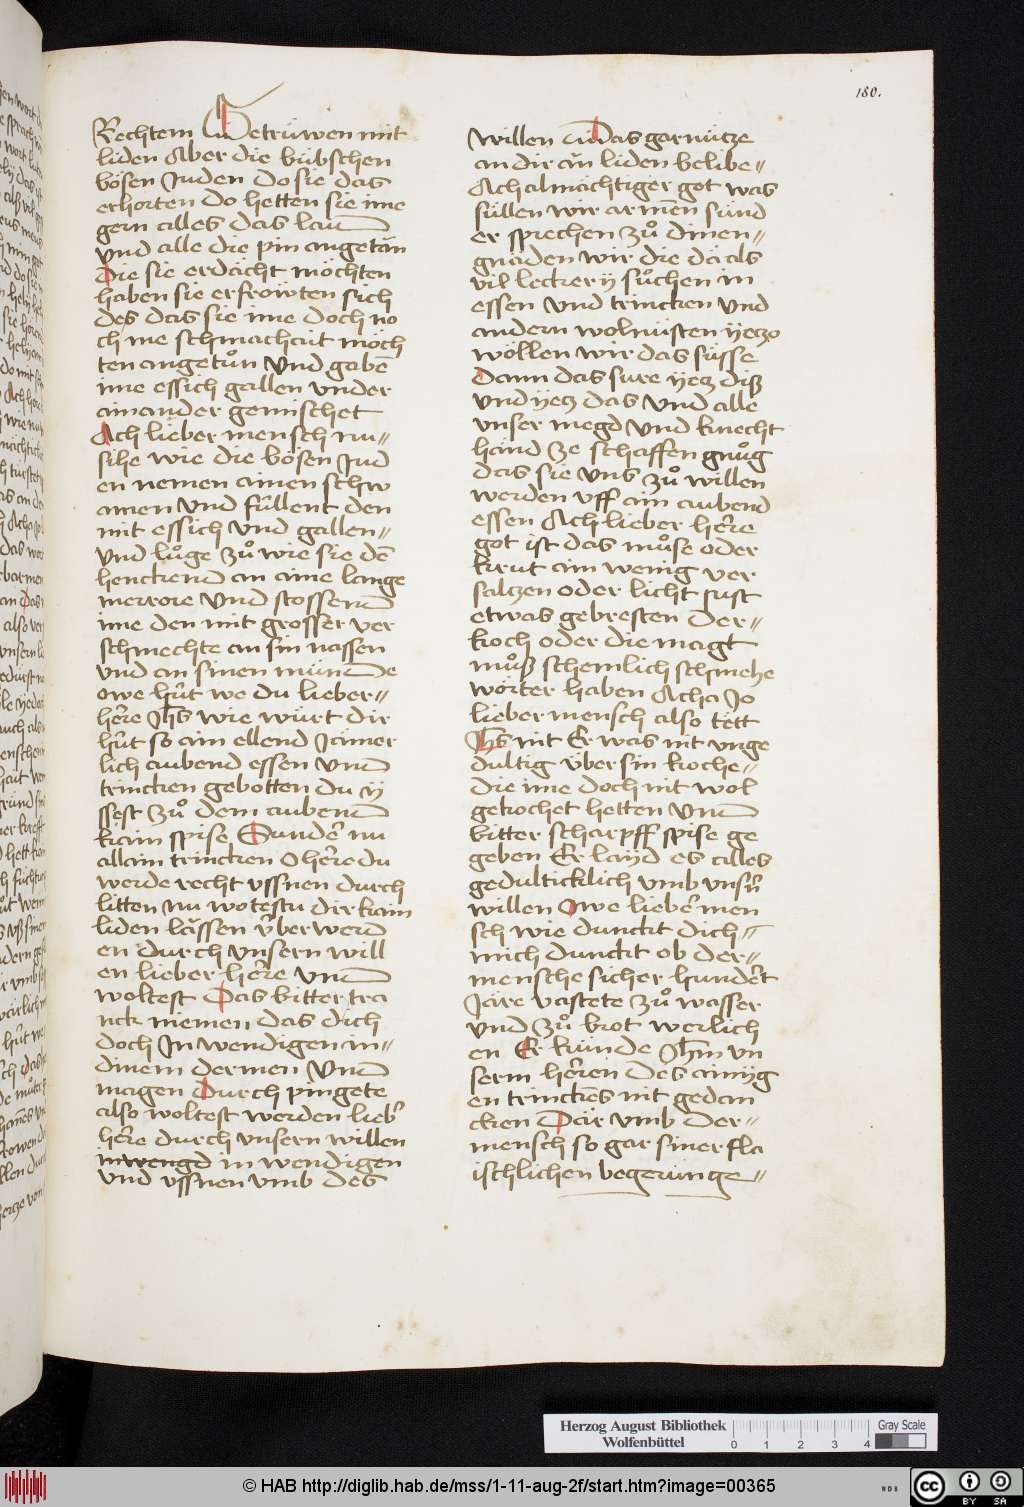 180.
Rechtem Getrüwen mit
liden Aber die hübschen
bösen Juden do sie das
erhorten do hetten sie ime
gern alles das laum
vnd alle die pin angetān
Die sie erdächt möchten
haben sie erfröwten sich
des das sie ime doch no
ch me schmachait möch
ten angetůn vnd gabē
ime essich gallen vnder
ainander gemischet
Ach lieber mensch nu〃
sihe wie die bösen Jud
en nemen ainen schw
amen vnd füllent den
mit essich vnd gallen〃
vnd lůge zů wie sie dē
henckend an aine lange
merrore vnd stossend
ime den mit grosser ver
schmechte an sin nassen
vnd an sinen münde
owe hüt we du lieber〃
here Jhs wie würt dir
hüt so ain ellend Jämer
lich aubend essen vnd
trincken gebotten du y
ssest zů dem aubend
kain spise Sunder nu
allain trincken O here du
werde recht vssnen durch
litten nu wotestu dir kain
liden lässen überwerd
en durch vnsern will
en lieber here vnd
woltest Das bitter tra
nck niemen das dich
doch Jn wendigen in〃
dinem dermen vnd
magen durch pingete
also woltest werden lieb
here durch vnsern willen
inwengd in wendigen
vnd vssnen vmb des
willen Das gar nütze
an dir ān liden belibe〃
Ach almächtiger got was
süllen wir armen sünd
er sprechen zů dinen〃
gnäden wir die dä als
vil leckery sůchen in
essen vnd trincken vnd
andern wolnüsten yeczo
wöllen wir das süsse
dann das sure yecz diß
vnd yecz das vnd alle
vnser megd vnd knecht
händ ze schaffen gnůg
das sie vns zů willen
werden vff ain aubend
essen Ach lieber here
got ist das můse oder
krut ain wenig ver
salczen oder licht sust
etwas gebresten Der〃
koch oder die magt
můß schemlich schmehe
wörter haben Acha Jo
lieber mensch also tett
Jhs nit Er was nit vnge
dultig über sin koche〃
die ime doch nit wol
gekochet hetten vnd
bitter scharpff spise ge
geben Er layd es alles
gedulticklich vmb vnsn
willen Owe lieber men
sch wie dunckt dich〃
mich dunckt ob der〃
mensche sicher hundert
Järe vastete zů wasser
vnd zů brot werlich
en Er künde Jhm vn
serm heren des ainyg
en trinckēs nit gedan
cken Där vmb Der〃
mensch so gar siner fla
ischlichen begerünge〃
Herzog August Bibliothek
Wolfenbüttel
0 1 2 3 4
Gray Scale
© HAB http://diglib.hab.de/mss/1-11-aug-2f/start.htm?image=00365
WDB
cc BY SA